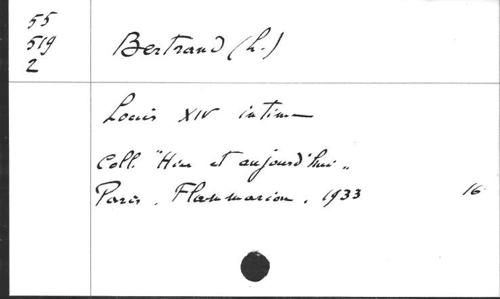 55
519
2
Bertrand (L.)
Louis XIV intime
Coll. "Hier et aujourd'hui"
Paris, Flammarion, 1933 16